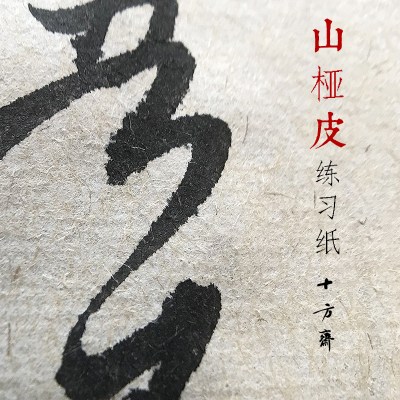 山桠皮
练习纸
十方齋